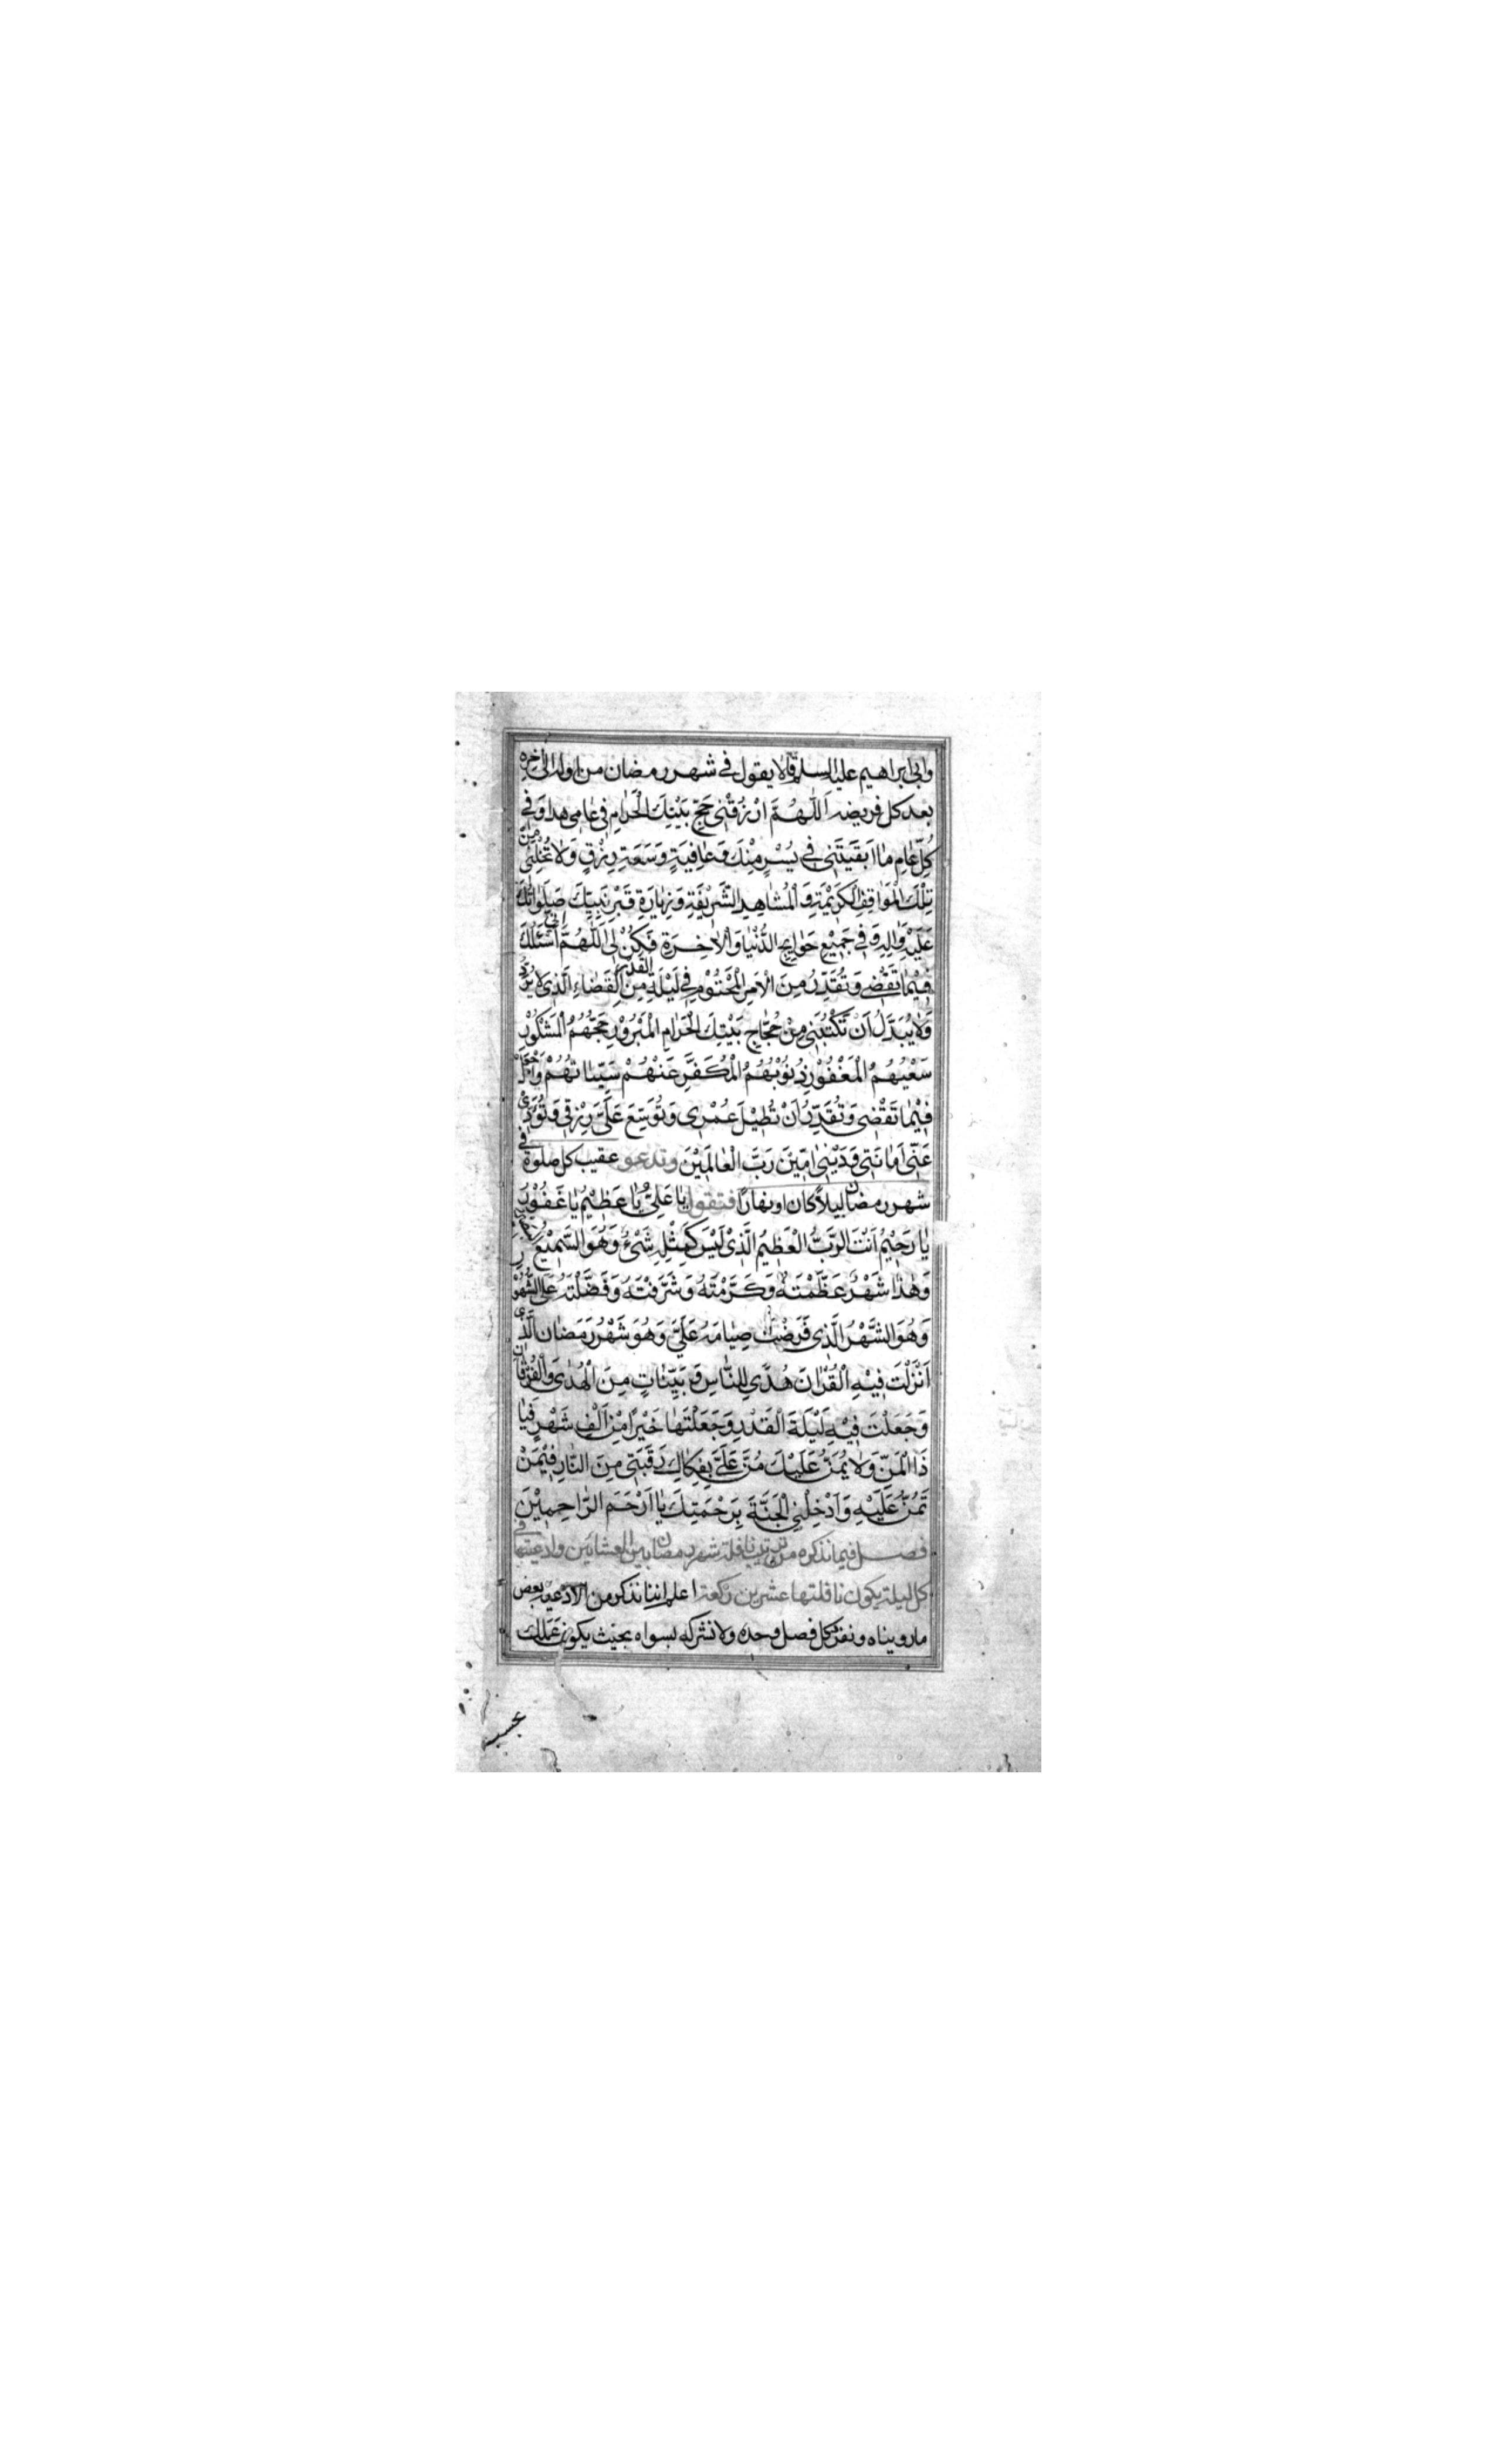 وابى ابراهيم عليه السلم قالا يقول فى شهر رمضان من اوله الى اخره
بعد كل فريضه اَللّٰهُمَّ ارْزُقْنِى حَجَّ بَيْتِكَ الْحَرَامِ فِى عَامِى هذا وَ فِى
كُلِّ عَامٍ مَا اَبْقَيْتَنِى فِى يُسْرٍ مِنْكَ وَ عَافِيَةٍ وَسَعَةِ رِزْقٍ وَلَا تُخْلِنِى مِنْ
تِلْكَ الْمَوَاقِفِ الْكَرِيْمَةِ وَ الْمَشَاهِدِ الشَّرِيْفَةِ وَ زِيَارَةِ قَبْرِ نَبِيِّكَ صَلَوَاتُكَ
عَلَيْهِ وَالِهِ وَ فِى جَمِيْعِ حَوَائِجِ الدُّنْيَا وَ الْاٰخِرَةِ فَكُنْ لِى اَللّٰهُمَّ اِنِّى اَسْئَلُكَ
فِيْمَا تَقْضِى وَ تُقَدِّرُ مِنَ الْاَمْرِ الْمَحْتُوْمِ فِى لَيْلَةِ الْقَدْرِ مِنَ الْقَضَاءِ الَّذِى لَا يُرَدُّ
وَلَا يُبَدَّلُ اَنْ تَكْتُبَنِى مِنْ حُجَّاجِ بَيْتِكَ الْحَرَامِ الْمَبْرُوْرِ حَجُّهُمُ الْمَشْكُوْرِ
سَعْيُهُمُ الْمَغْفُوْرِ ذُنُوْبُهُمُ الْمُكَفَّرِ عَنْهُمْ سَيِّئَاتُهُمْ وَاجْعَلْ
فِيْمَا تَقْضِى وَ تُقَدِّرُ اَنْ تُطِيْلَ عُمْرِى وَ تُوَسِّعَ عَلَىَّ رِزْقِى وَ تُؤَدِّىَ
عَنِّى اَمَانَتِى وَ دَيْنِى اٰمِيْنَ رَبَّ الْعَالَمِيْنَ وتدعو عقيب كل صلوة فى
شهر رمضان ليلاً كان او نهارًا فتقول يَا عَلِىُّ يَا عَظِيْمُ يَا غَفُوْرُ
يَا رَحِيْمُ اَنْتَ الرَّبُّ الْعَظِيْمُ الَّذِىْ لَيْسَ كَمِثْلِهِ شَىْءٌ وَ هُوَ السَّمِيْعُ الْبَصِيْرُ
وَ هٰذَا شَهْرٌ عَظَّمْتَهُ وَ كَرَّمْتَهُ وَ شَرَّفْتَهُ وَ فَضَّلْتَهُ عَلَى الشُّهُوْرِ
وَ هُوَ الشَّهْرُ الَّذِى فَرَضْتَ صِيَامَهُ عَلَىَّ وَ هُوَ شَهْرُ رَمَضَان الَّذِى
اَنْزَلْتَ فِيْهِ الْقُرْانَ هُدًى لِلنَّاسِ وَ بَيِّنَاتٍ مِنَ الْهُدٰى وَالْفُرْقَانِ
وَ جَعَلْتَ فِيْهِ لَيْلَةَ الْقَدْرِ وَ جَعَلْتَهَا خَيْرًا مِنْ اَلْفِ شَهْرٍ فَيَا
ذَا الْمَنِّ وَلَا يُمَنُّ عَلَيْكَ مُنَّ عَلَىَّ بِفِكَاكِ رَقَبَتِى مِنَ النَّارِ فِيْمَنْ
تَمُنُّ عَلَيْهِ وَ اَدْخِلْنِى الْجَنَّةَ بِرَحْمَتِكَ يَا اَرْحَمَ الرَّاحِمِيْنَ
فصل فيما نذكره من ترتيب نافلة شهر رمضان بين العشائين وادعيتها فى
كل ليلة يكون نافلتها عشرين ركعة اعلم اننا نذكر من الادعيه بعض
ما رويناه ونفرد كل فصل وحده ولا نشركه بسواه بحيث يكون عملك
بحسب